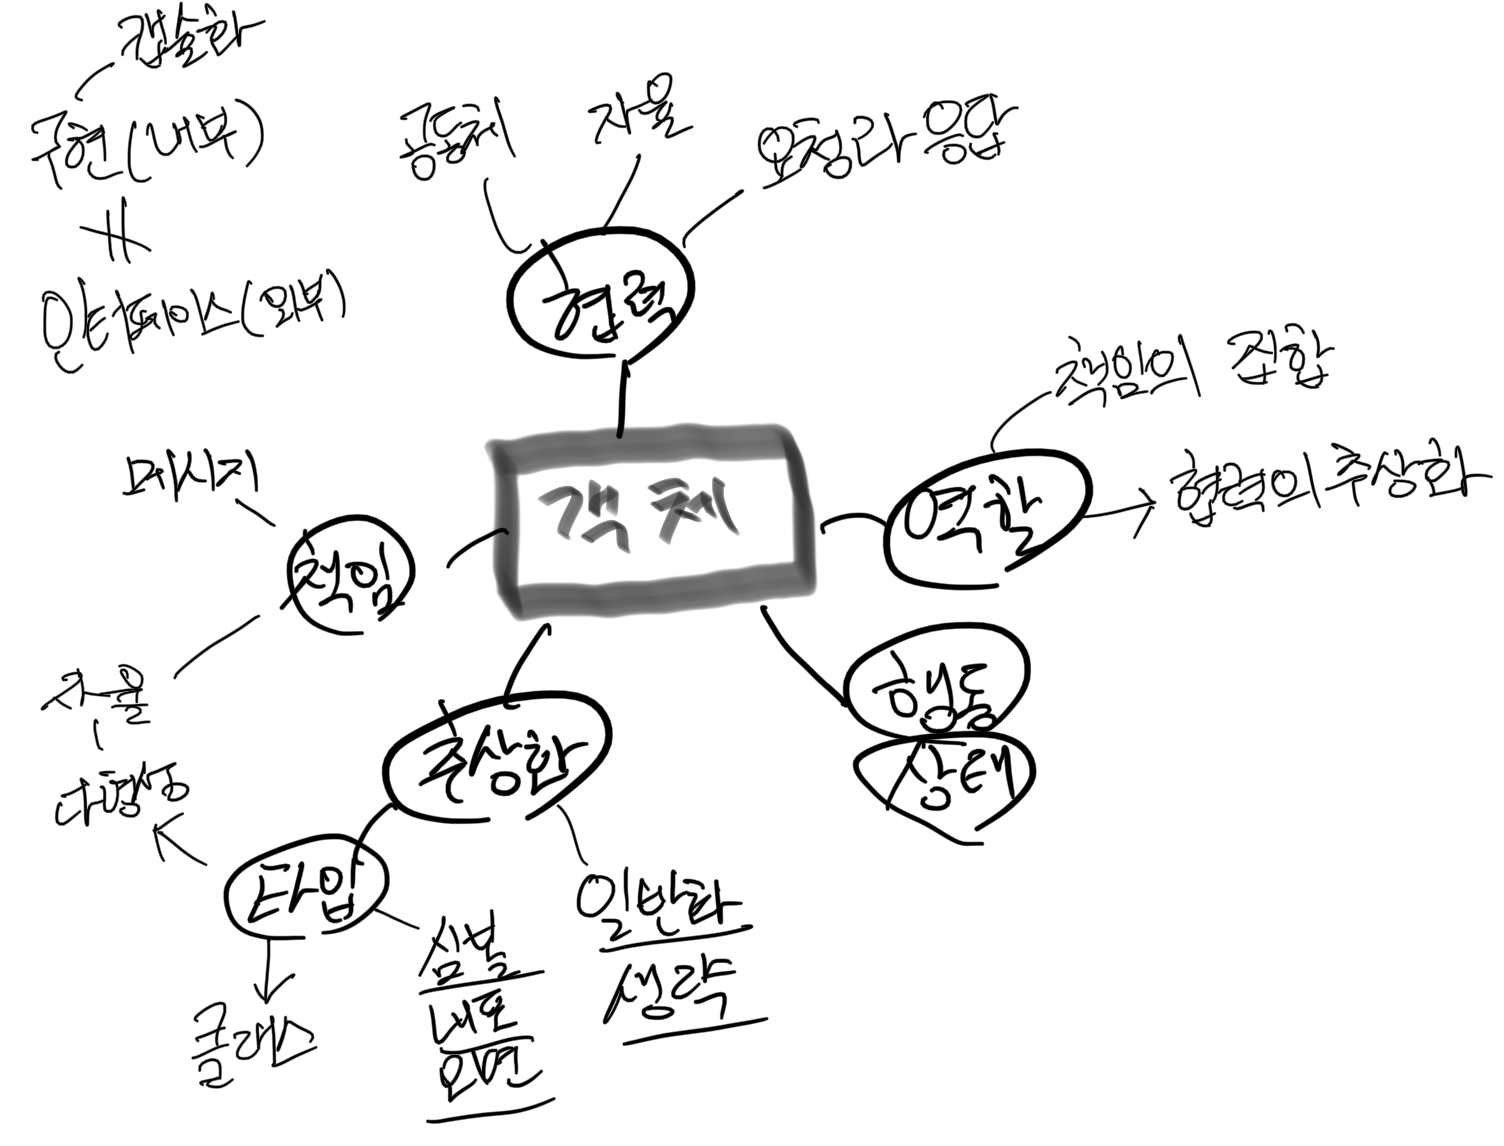 캡슐화
구현(내부)
인터페이스(외부)
공동체
자율
요청과 응답
협력
객체
책임의 집합
역할
협력의 추상화
메시지
책임
자율
다형성
행동
상태
추상화
타입
클래스
심볼
내포
외연
일반화
생략